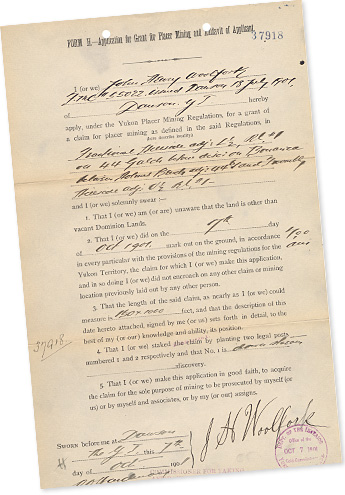 FORM H.—Application for Grant for Placer Mining and Affidavit of Applicant.
37918
I (or we) John Henry Woolfork
F.M.C. # 25022 issued Dawson 13 July 1901,
of Dawson, Y.T. hereby
apply, under the Yukon Placer Mining Regulations, for a grant of
a claim for placer mining as defined in the said Regulations, in
(here describe locality)
Fractional Hillside adj. L½,
on 44 Gulch
Hillside adj. U½
and I (or we) solemnly swear :—
1. That I (or we) am (or are) unaware that the land is other than
vacant Dominion Lands.
2. That I (or we) did on the 7th day
of Oct 1901. mark out on the ground, in accordance
in every particular with the provisions of the mining regulations for the
Yukon Territory, the claim for which I (or we) make this application,
and in so doing I (or we) did not encroach on any other claim or mining
location previously laid out by any other person.
3. That the length of the said claim, as nearly as I (or we) could
measure is feet, and that the description of
date hereto attached, signed by me (or us) sets forth in detail, to the
best of my (or our) knowledge and ability, its position.
37918
4. That I (or we) staked the claim by planting two legal posts
numbered 1 and 2 respectively and that No. 1 is
discovery.
5. That I (or we) make this application in good faith, to acquire
the claim for the sole purpose of mining to be prosecuted by myself (or
us) or by myself and associates, or by my (or our) assigns.
SWORN before me at Dawson
the Y.T. this 7th
day of Oct 1901
J H Woolfork
OCT 7 1901